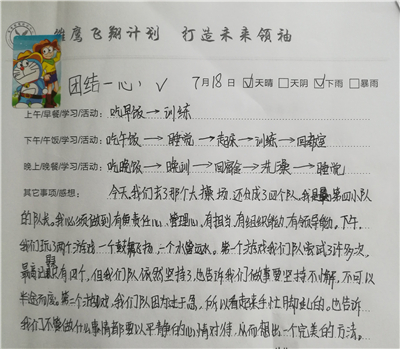 雏鹰飞翔计划 打造未来领袖
团结一心，√ 7月18日 ☑天晴 □天阴 ☑下雨 □暴雨
上午/早餐/学习/活动：吃早饭→训练
下午/午饭/学习/活动：吃午饭→睡觉→起床→训练→回寝室
晚上/晚餐/学习/活动：吃晚饭→晚训→回宿舍→洗澡→睡觉
其它事项/感想：今天,我们去了那个大操场.还分成了四个队.我是第四小队
的队长。我必须做到有责任心、管理心、有担当、有组织能力、有领导能力。下午,
我们玩了两个游戏一个鼓舞飞扬,一个水管运水。第一个游戏我们队尝试了许多次,
最高记录只有四个,但我们队依然坚持了,也告诉我们做事要坚持不懈,不可以
半途而废。第二个游戏,我们队因为过于急,所以看起来手忙脚乱的。也告诉
我们不管做什么事情都要以平静的心情对待,从而想出一个完美的方法。